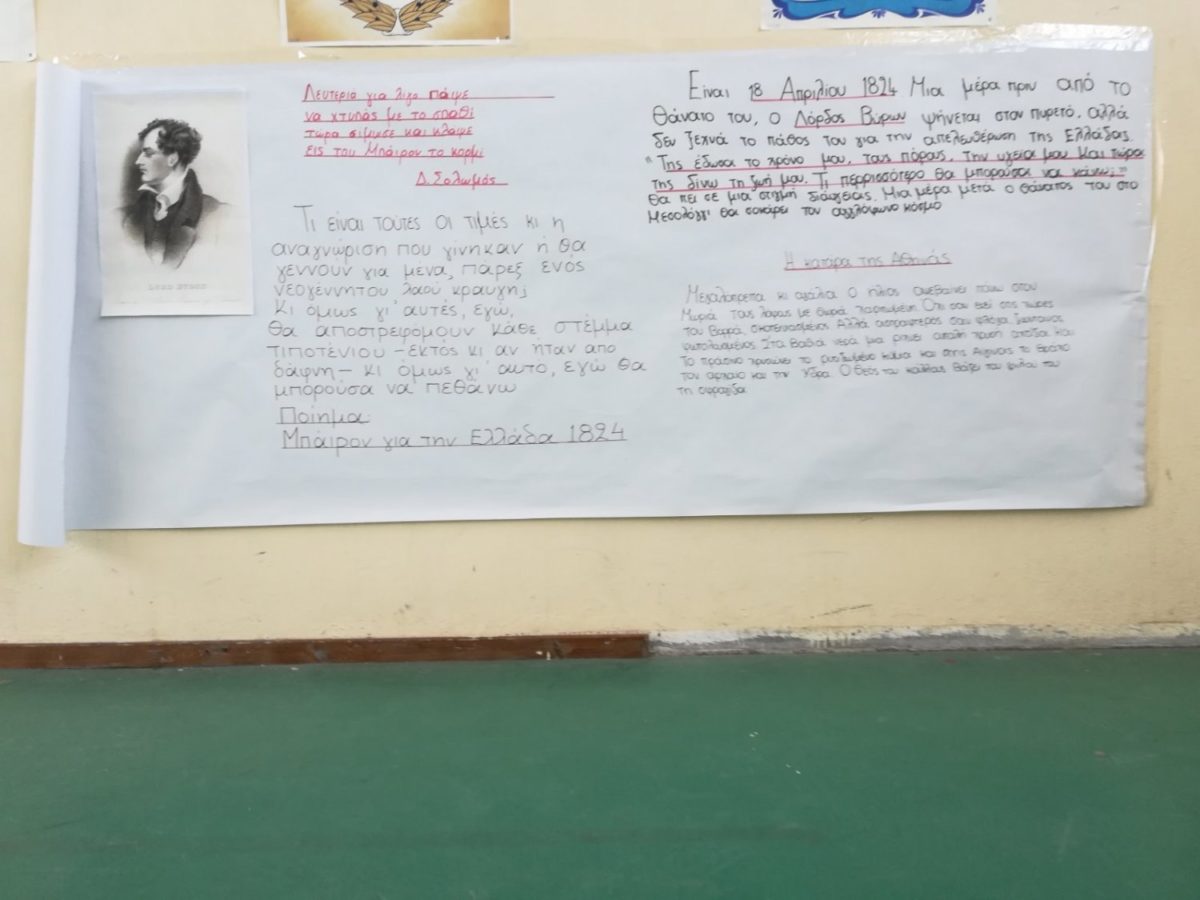 Λευτεριά για λίγο πάψε
να χτυπάς με το σπαθί
τώρα σίμωσε και κλάψε
εις του Μπάιρον το κορμί
Δ. Σολωμός
Τι είναι τούτες οι τιμές κι η
αναγνώριση που γίνηκαν ή θα
γεννουν για μενα, πάρεξ ενός
νεογέννητου λαού κραυγη;
Κι όμως γι' αυτές, εγώ,
θα αποστρεφόμουν κάθε στέμμα
τιποτένιου - εκτός κι αν ήταν απο
δάφνη - κι όμως γι' αυτο, εγώ θα
μπορούσα να πεθάνω
Ποίημα:
Μπάιρον για την Ελλάδα 1824
LORD BYRON
Είναι 18 Απριλίου 1824 Μια μέρα πριν από το
θάνατο του, ο Λόρδος Βύρων ψήνεται στον πυρετό, αλλά
δεν ξεχνά το πάθος του για την απελευθέρωση της Ελλάδας.
"Της έδωσα το χρόνο μου, τους πόρους, την υγεία μου και τώρα
της δίνω τη ζωή μου. Τι περρισσότερο θα μπορούσα να κάνω;"
θα πει σε μια στιγμή διαύγειας. Μια μέρα μετά ο θάνατος του στο
Μεσολόγγι θα σοκάρει τον αγγλόφωνο κόσμο
Η κατάρα της Αθηνάς
Μεγαλόπρεπα κι αγάλια ο ήλιος ανεβαίνει πάνω στου
Μωριά τους λόφους με θωριά χαριτωμένη. Όχι σαν εκεί στις χώρες
του Βορρά, σκοτεινιασμένος Αλλά ασπροπύτερος σαν φλόγα ζωντανος
φωτολουσμένος Στα βαθιά νερά μια ρίχνει απαλή χρυσή
Το πράσινο χρυσώνει το κύμα και στης Αίγινας το βράχο
τον αρχαίο και την Ύδρα. Ο Θεός του κάλλους βάζει του του
τη σφραγίδα